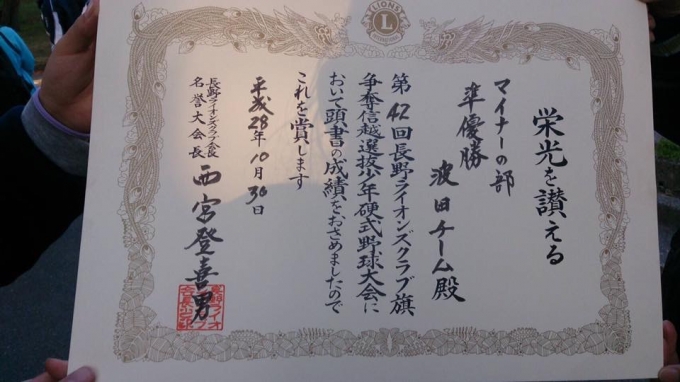 LIONS
L
栄光を讃える
マイナーの部
準優勝
波田チーム殿
第42回長野ライオンズクラブ旗
争奪信越選抜少年硬式野球大会に
おいて頭書の成績をおさめましたので
これを賞します
平成28年10月30日
長野ライオンズクラブ会長
名誉大会長
西宮登喜男